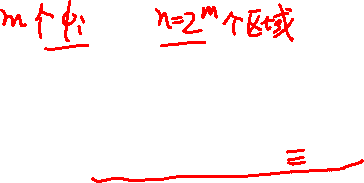 m个ϕi n=2^m个区域
三